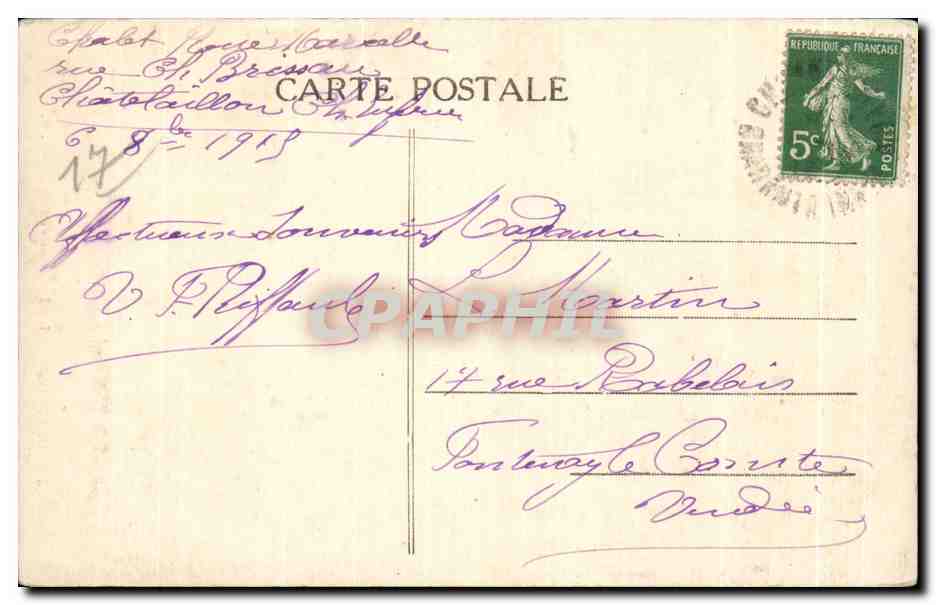 Chalet Rose Marcelle
rue Ch Brisson
Châtelaillon
6 8bre 1915
17
CARTE POSTALE
REPUBLIQUE FRANÇAISE
5c
POSTES
Affectueux Souvenirs
V. P. Riffault
Madame
L. Martin
17 rue Rabelais
Fontenay le Comte
Vendée
CPAPHIL